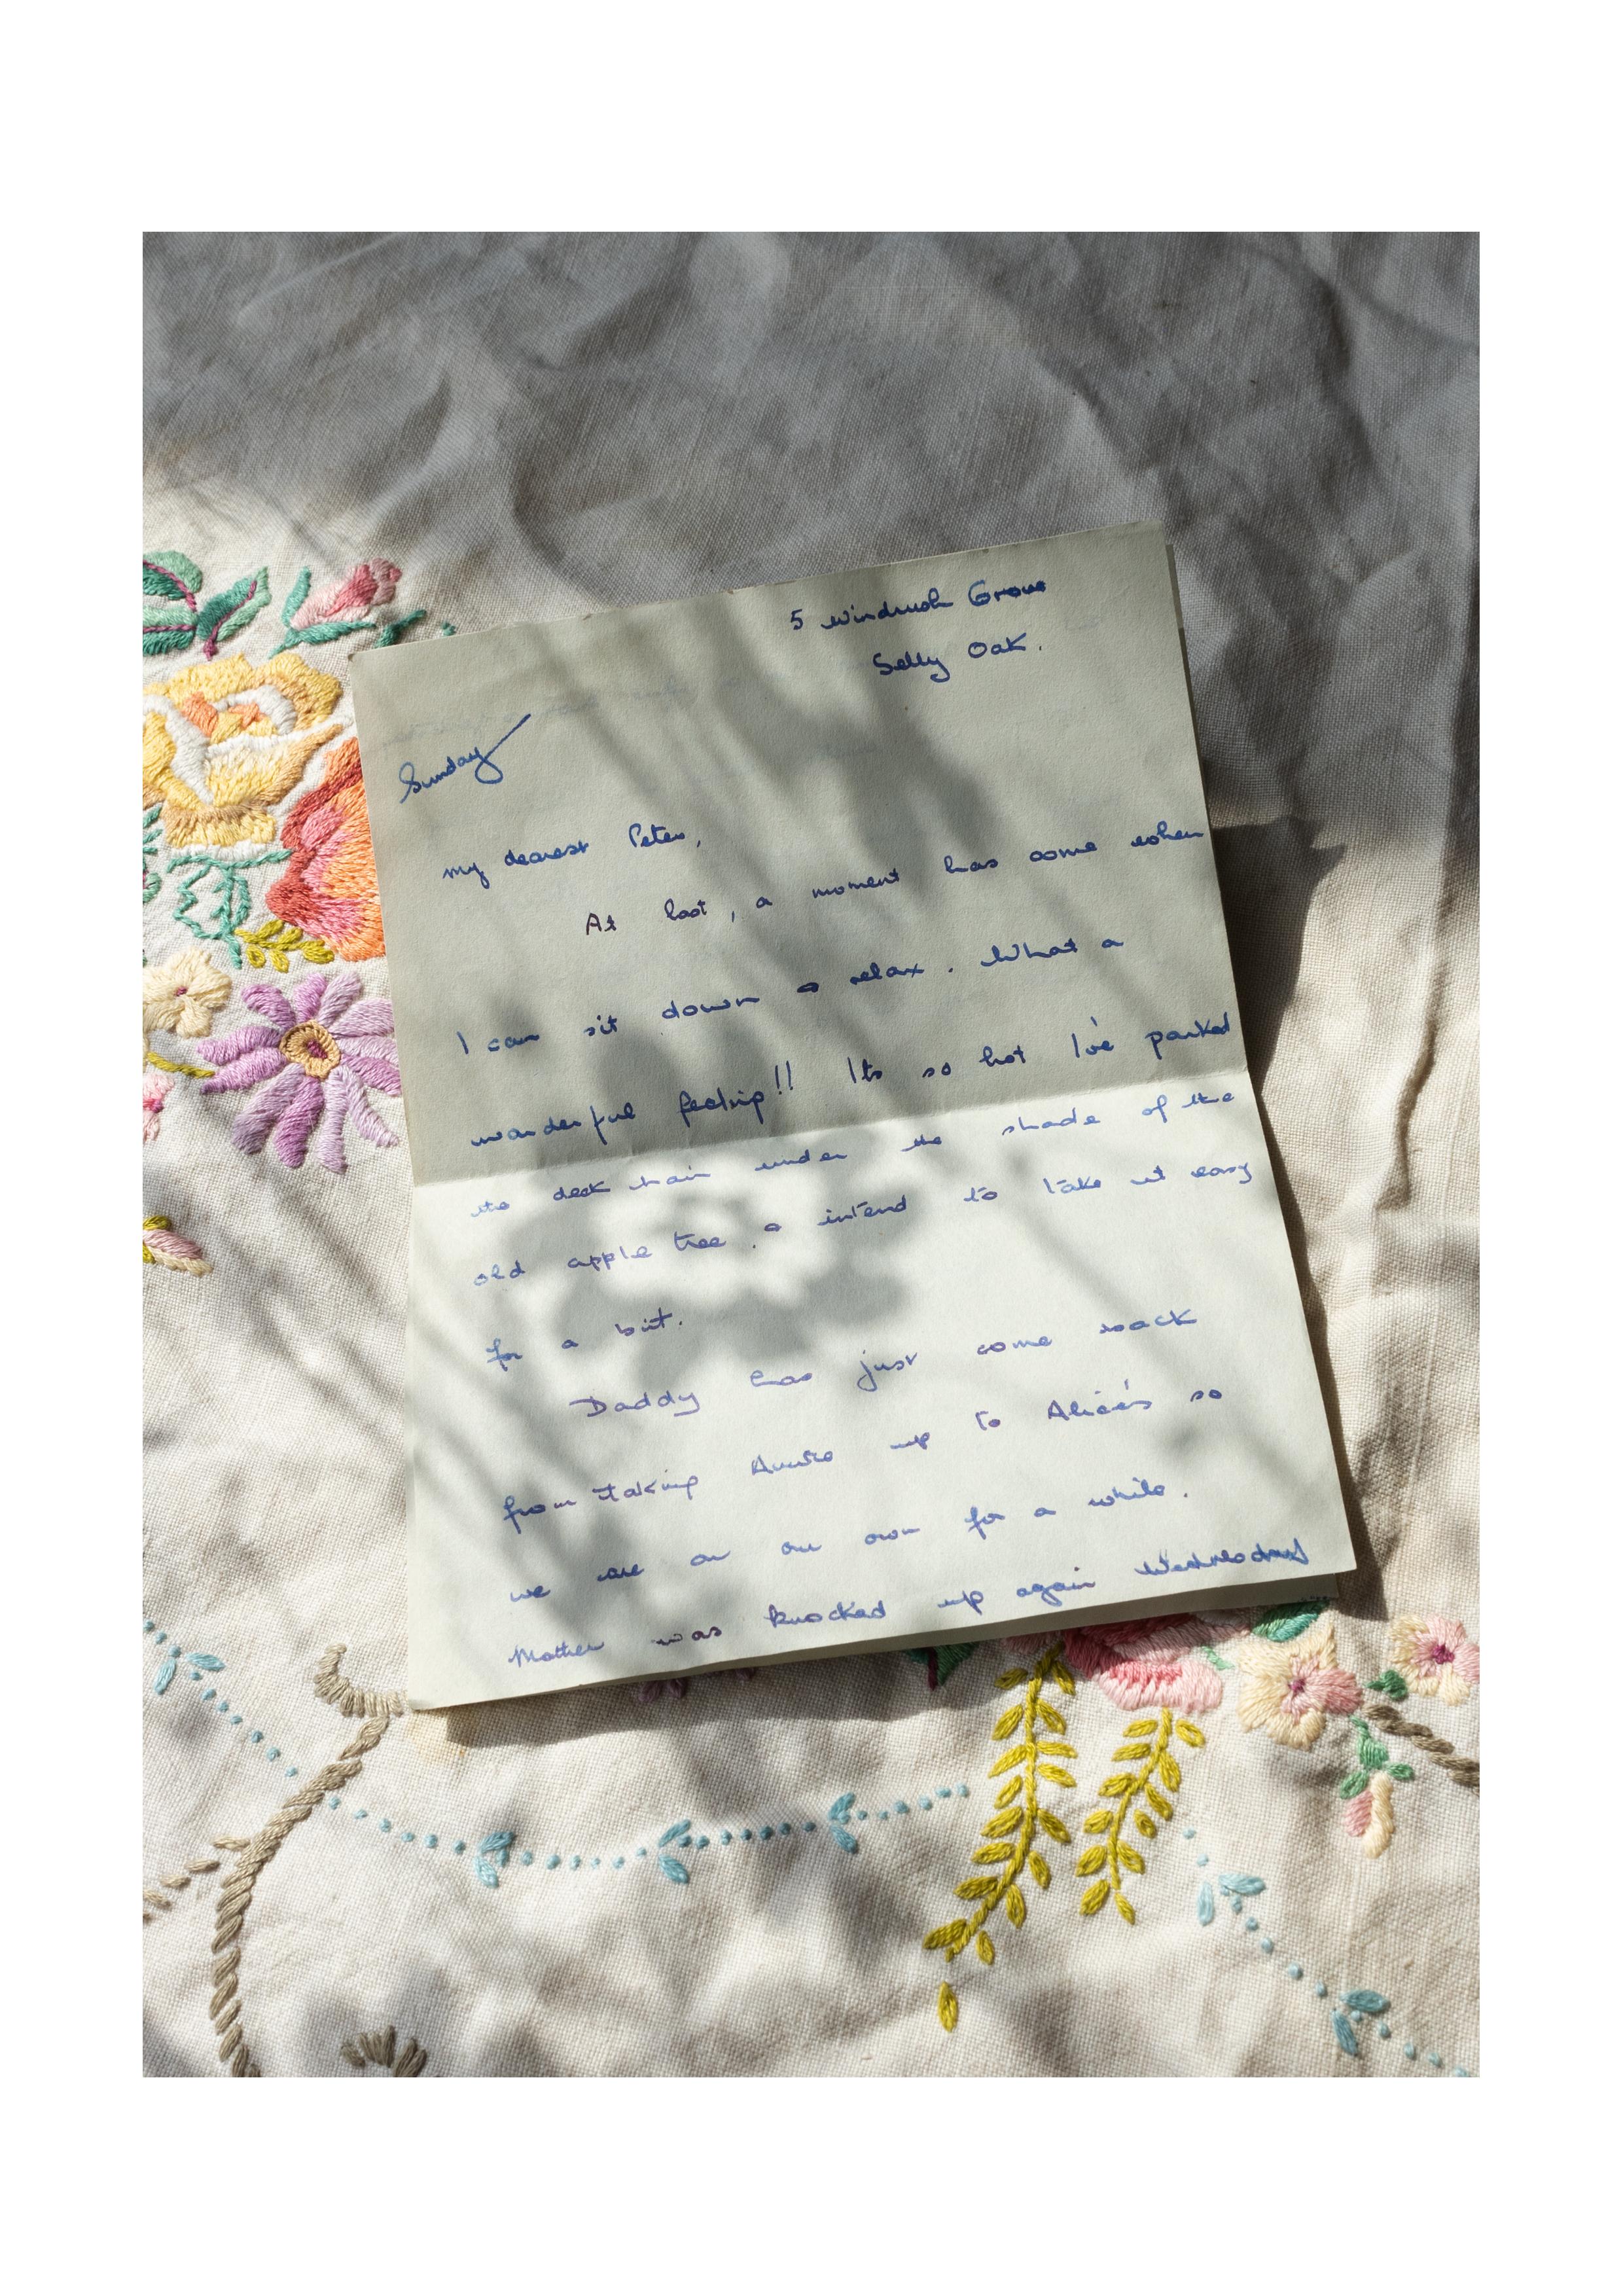 5 Windrush Grove
Selly Oak.
Sunday
my dearest Peter,
At last, a moment has come when
I can sit down & relax. What a
wonderful feeling!! Its so hot I've parked
the deck chair under the shade of the
old apple tree. & intend to take it easy
for a bit.
Daddy has just come back
from taking up to Alice's so
we are on our own for a while.
Mother was knocked up again Wednesday